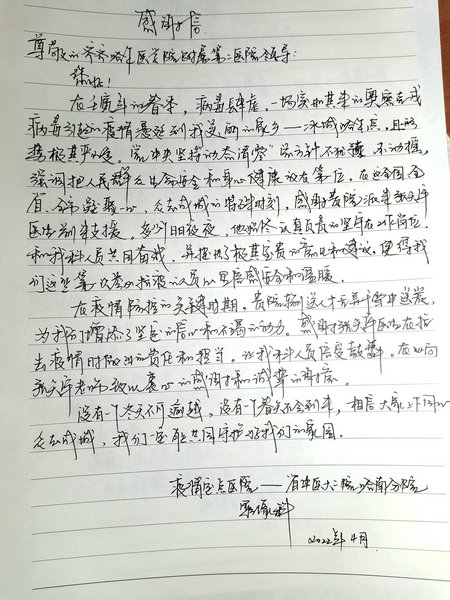 感谢信
尊敬的齐齐哈尔医学院附属第二医院领导:
您好!
在壬寅年的春来,病毒肆虐,一场突如其来的奥密克戎
病毒引起的疫情蔓延到我美丽的家乡——冰城哈尔滨,且形
势极其严峻。党中央坚持动态清零总方针不犹豫、不动摇,
强调把人民群众生命安全和身心健康放在第一位。在这全国全
省、全市凝聚一心,众志成城的特殊时刻,感谢贵院派来
医生前来支援。多少日日夜夜,他始终认真负责的坚守在工作岗位,
和我科人员共同奋战,并提供了极其宝贵的意见和建议,使得我
们这些第一次参加抗疫的人员倍感安全和温暖。
在疫情防控的关键时期,贵院输送人才无异于雪中送炭,
为我们增添了坚定的信心和不竭的动力。感谢 医生在抗
击疫情时做出的责任和担当,让我科人员倍受鼓舞。在此向
老师致以衷心的感谢和诚挚的谢意。
没有一个冬天不可逾越,没有一个春天不会到来,相信大家上下同心
众志成城,我们一定能共同守护好我们的家园。
疫情定点医院——省中医大二院哈南分院
影像科
2022年4月